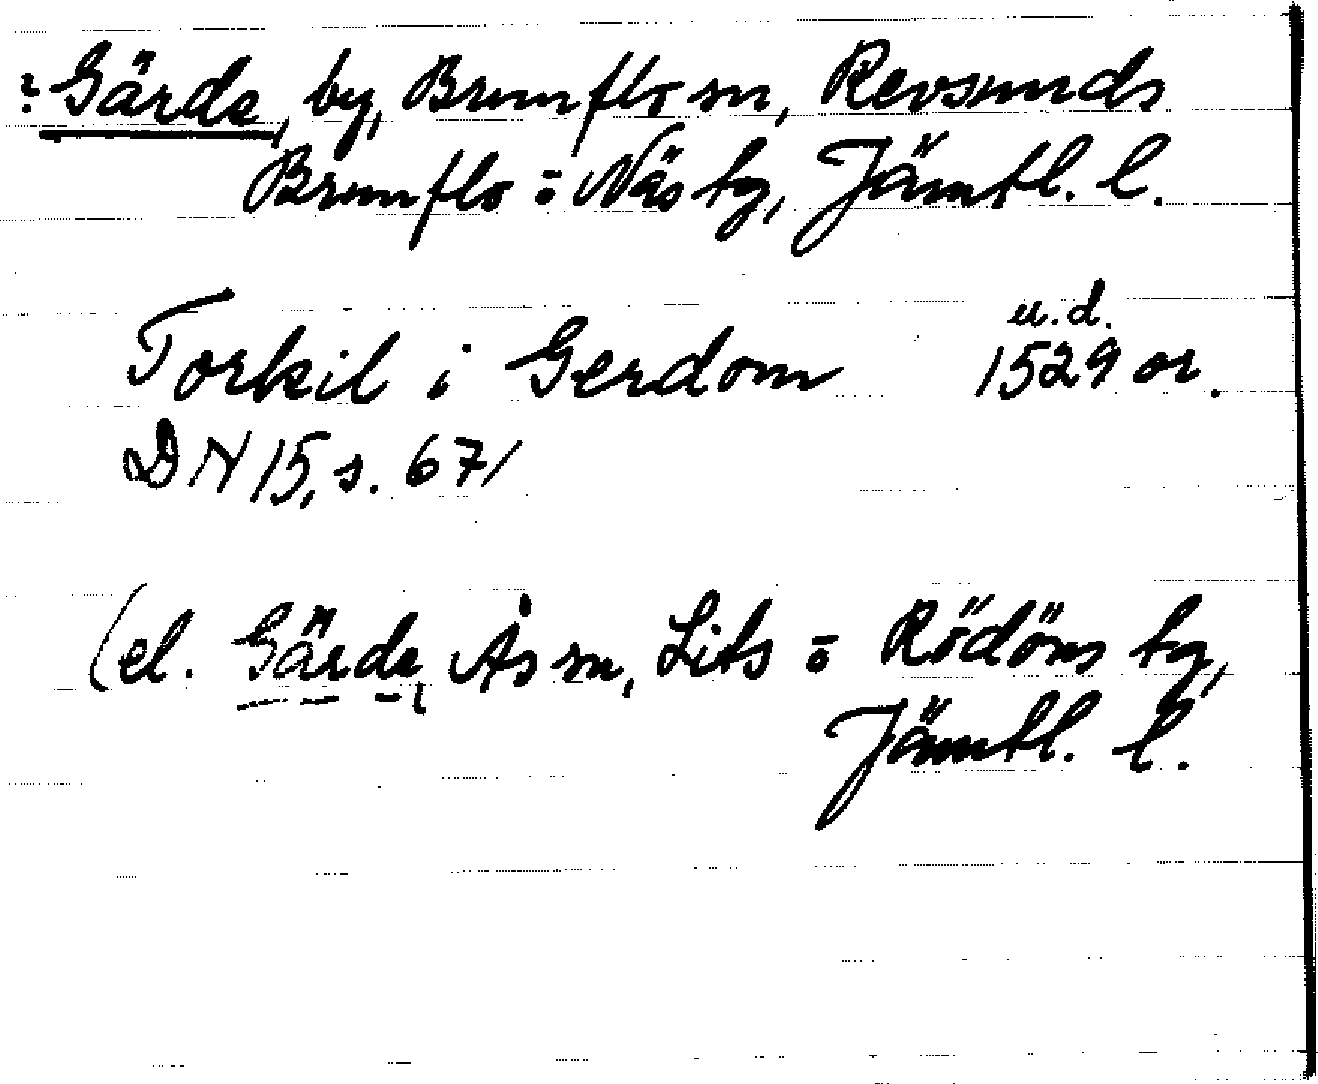 ? Gärde, by, Brunflo sn, Revsunds
Brunflo o Näs tg, Jämtl. l.
u.d.
Torkil i Gerdom 1529 or.
DN 15, s. 671
(el. Gärde, Ås sn, Lits o Rödöns tg,
Jämtl. l.